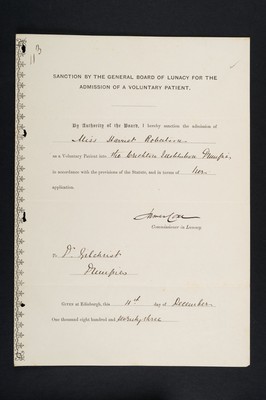 113
SANCTION BY THE GENERAL BOARD OF LUNACY FOR THE
ADMISSION OF A VOLUNTARY PATIENT.
By Authority of the Board, I hereby sanction the admission of
Miss Harriet Robertson
as a Voluntary Patient into the Crichton Institution Dumfries,
in accordance with the provisions of the Statute, and in terms of her
application.
James Coxe
Commissioner in Lunacy.
To Dr Gilchrist
Dumfries
Given at Edinburgh, this 4th day of December
One thousand eight hundred and seventy three